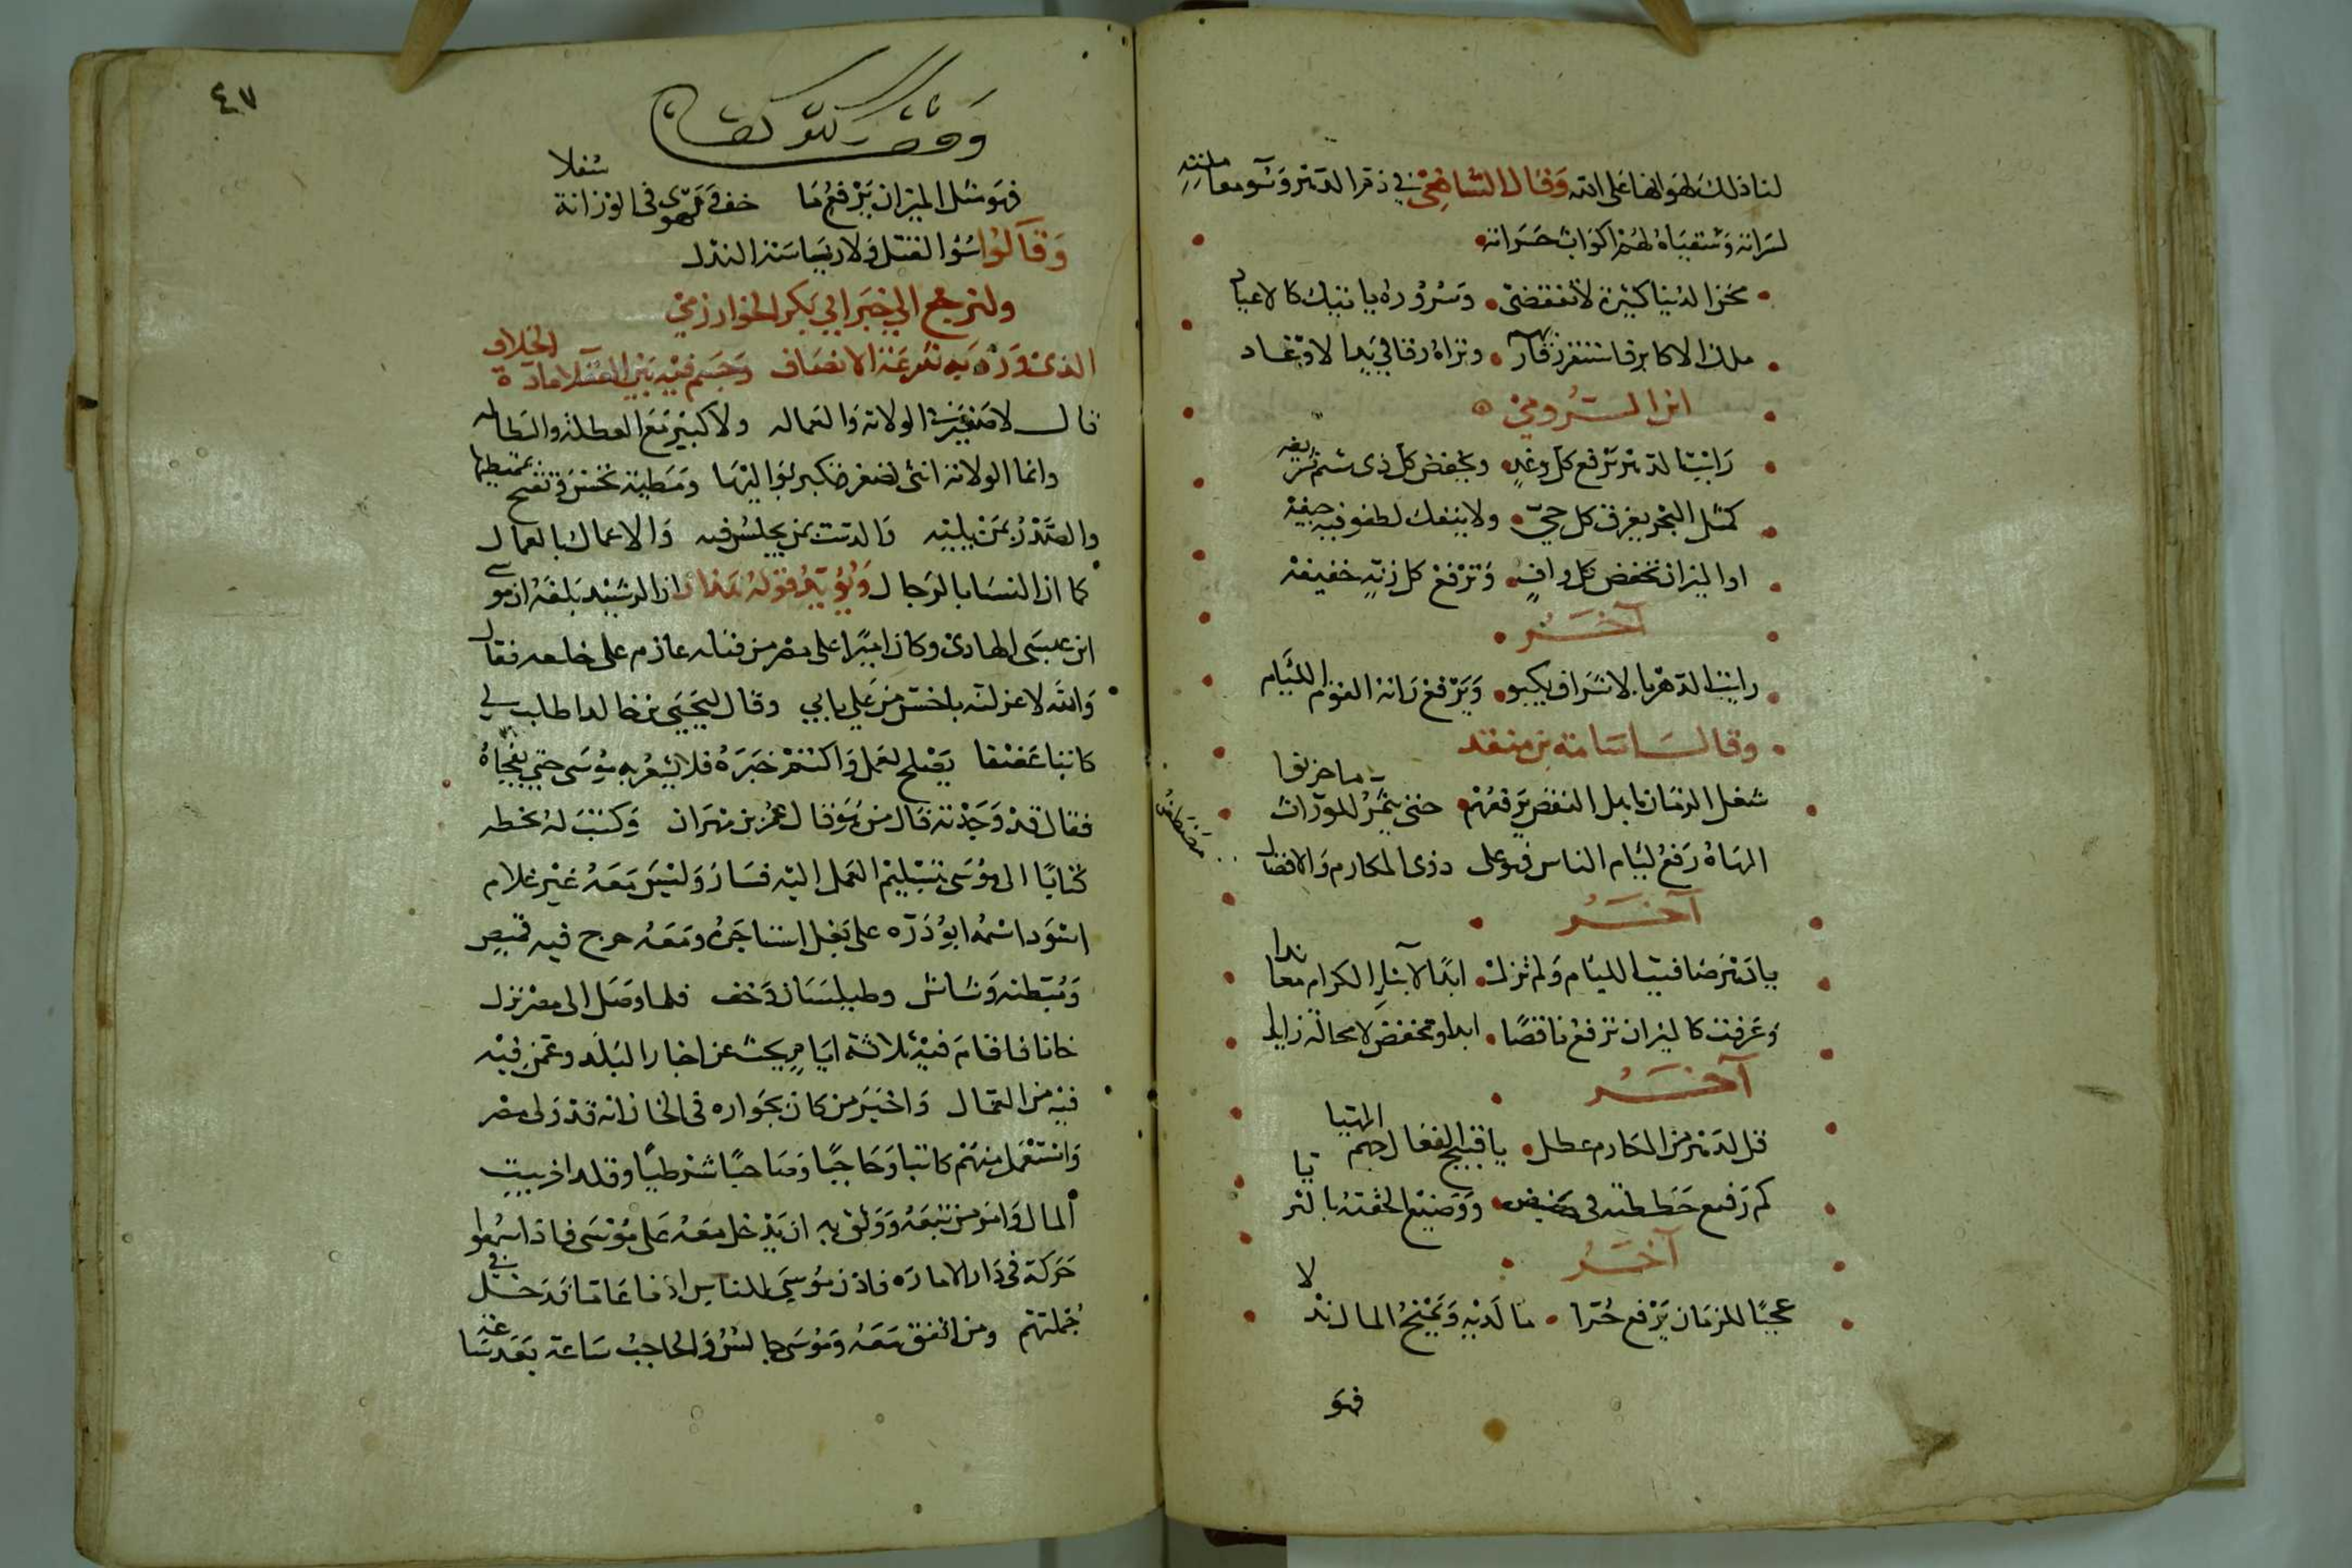 لنا ذلك لهو انها على الله وقال الشافعي في ذم الدهر وسو معاملته
لسراته وستقباه لهم اكواب حسراته
محن الدنيا كثيرة لا تنقضي وسروره ياتيك كالاعياد
ملك الاكابر فاسترق رقابهم وتراه رقا في يد الاوغاد
ابن الرومي
رايت الدهر يرفع كل وغد ويخفض كل ذي شيم شريفه
كمثل البحر يغرق كل حي ولا ينفك تطفو فيه جيفه
او الميزان يخفض كل واف وترفع كل ذي زنة خفيفه
آخر
رايت الدهر بالاشراف يكبو ويرفع راية القوم اللئام
وقال اسامة بن منقذ
شغل الزمان باهل النقص يرفعهم حتى يثمر للوراث ما خزنوا
الهاه رفع ليام الناس فهو على ذوي المكارم والافضال مضطغن
آخر
يا دهر صافيت الليام ولم تزل ابدا لابناء الكرام معاندا
وعرفت كالميزان ترفع ناقصا ابدا وتخفض لا محالة زايدا
آخر
قل لدهر من المكارم عطل يا قبيح الفعال جهم المحيا
كم رفيع حططته في حضيض ووضيع الحقته بالثريا
آخر
عجبا للزمان يرفع حرا ما لديه ويمنح المال نذلا
فهو
٤٧
وقف
فهو مثل الميزان يرفع ما خف ويهوى في الوزانة سفلا
وقالوا اسوا القتل ولا رياسة النذل
ولنرجع الي خبر ابي بكر الخوارزمي
الذي ورد به نتفرعنه الانصاف وحسم فيه بين العقلا مادة الخلاف
قال لا صغير مع الولاية والعمالة ولا كبير مع العطلة والبطالة
وانما الولاية انثى تصغر وتكبر بواليها ومطية تحسن وتقبح بممتطيها
والصدر بمن يليه والدست بمن يجلس فيه والاعمال بالعمال
كما ان النسا بالرجال ويؤيد قوله هذا ان الرشيد بلغه ان موسى
ابن عيسى الهادي وكان اميرا على مصر من قبله عازم على خلعه فقال
والله لاعزلنه باخس من علي بابي وقال ليحيى بن خالد اطلب لي
كاتبا عفيفا يصلح لعمل واكتم خبره فلا يشعر به موسى حتى يفجاه
فقال قد وجدته قال من هو قال عمر بن مهران وكتب له بخطه
كتابا الى موسى بتسليم العمل اليه فسار وليس معه غير غلام
اسود اسمه ابو درة على بغل استاجره ومعه خرج فيه قميص
ومبطنة وشاش وطيلسان وخف فلما وصل الى مصر نزل
خانا فاقام فيه ثلاثة ايام يبحث عن اخبار البلد وعمن فيه
فيه من العمال واخبر من كان بجواره في الخان انه قد ولي مصر
واستعمل منهم كاتبا وحاجبا وصاحبا شرطيا وقلد اخر بيت
المال وامر من تبعه ووثق به ان يدخل معه على موسى فاذا سمعوا
حركة في دار الامارة فاذن موسى للناس اذنا عاما فدخل في
جملتهم ومن اتفق معه وموسى جالس والحاجب ساعة بعد ساعة